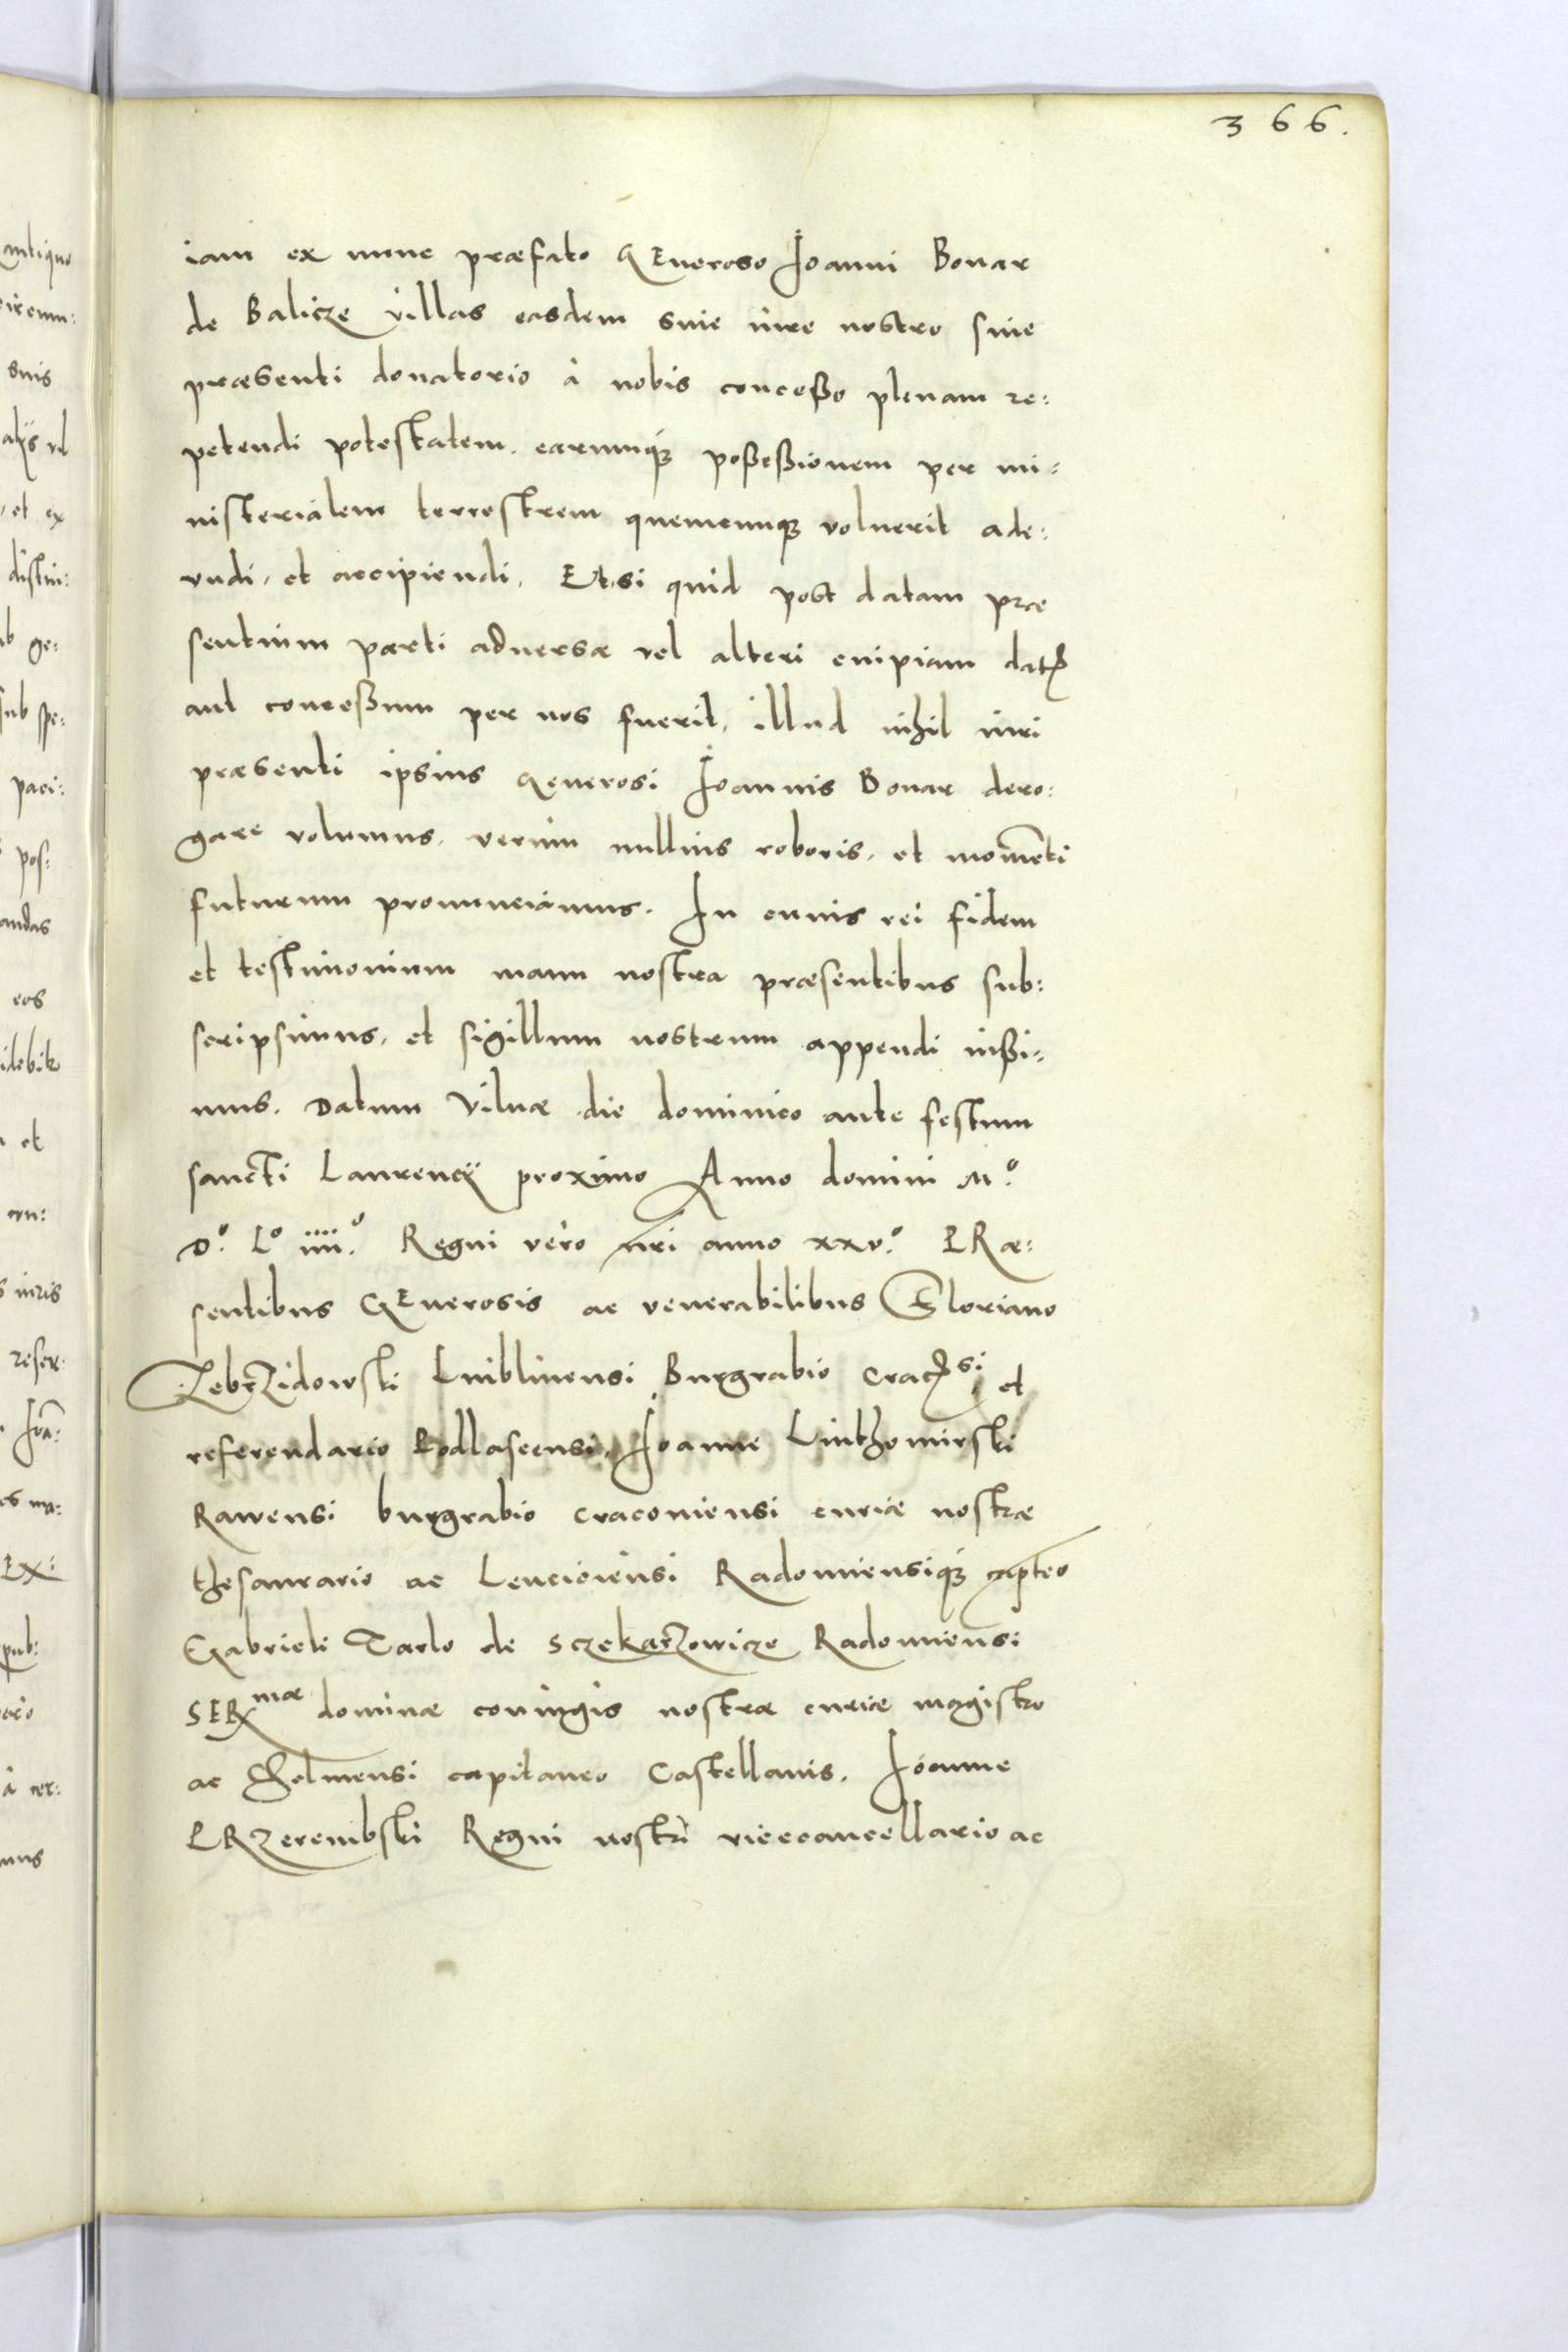 366.
iam ex nunc præfato GEneroso Ioanni Bonar
de Balicze villas easdem siue iure nostro siue
præsenti donatorio à nobis conceßo plenam re:
petendi potestatem. earumq; poßeßionem per mi:
nisterialem terrestrem quemcunq; voluerit ade:
undi, et accipiendi. Et si quid post datam præ
sentium parti aduersæ vel alteri cuipiam datū
aut conceßum per nos fuerit, illud nihil iuri
præsenti ipsius Generosi Ioannis Bonar dero:
gare volumus. verum nullius roboris, et momēti
futurum pronunciamus. In cuius rei fidem
et testimonium manu nostra præsentibus sub:
scripsimus, et sigillum nostrum appendi iußi:
mus. Datum Vilnæ die dominico ante festum
sancti Laurencÿ proximo Anno domini Mº.
Dº. Lº iiiiº. Regni vero nri anno xxvº. PRæ:
sentibus GEnerosis ac venerabilibus Floriano
Zebrzidowski Lublinensi Burgrabio Cracsi et
referendario Podlascensi, Ioanne Luthomirski
Rawensi burgrabio cracouiensi curiæ nostræ
thesaurario ac Lenciciensi Radomiensiq; capteo
Gabrieli Tarlo de Sczekarzowicze Radomiensi
SERmæ dominæ coniugis nostræ curiæ magistro
ac Chelmensi capitaneo Castellanis. Ioanne
PRzerembski Regni nostri vicecancellario ac
antiquo
suis
alÿs vel
et ex
distin:
ge:
sub spe:
paci:
pos:
andas
eos
et
iuris
reser:
Ioā:
Ex:
pub:
à